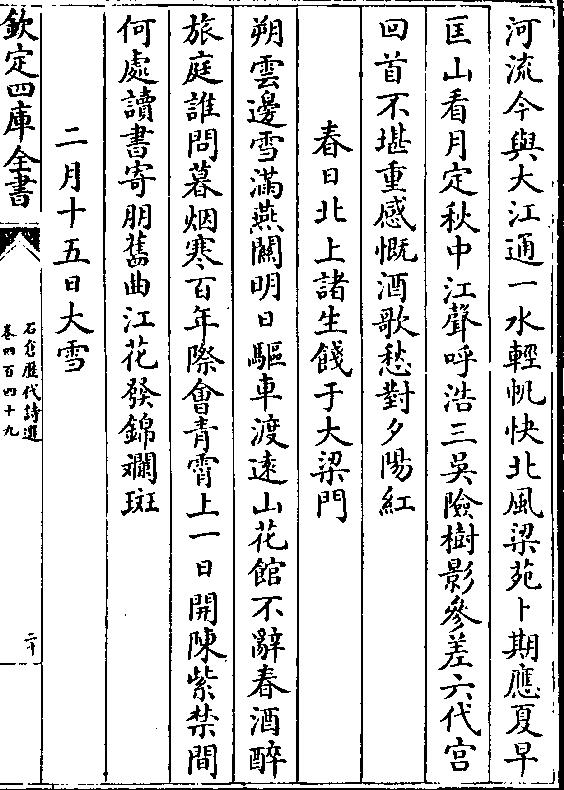 河流今與大江通一水輕帆快北風梁苑卜期應夏早
匡山看月定秋中江聲呼浩三吳險樹影參差六代宫
回首不堪重感慨酒歌愁對夕陽紅
春日北上諸生餞于大梁門
朔雲邊雪滿燕關明日驅車渡遠山花館不辭春酒醉
旅庭誰問暮烟寒百年際會青霄上一日開陳紫禁間
何處讀書寄朋舊曲江花發錦斕斑
二月十五日大雪
欽定四庫全書
石倉歷代詩選
卷四百四十九
二十